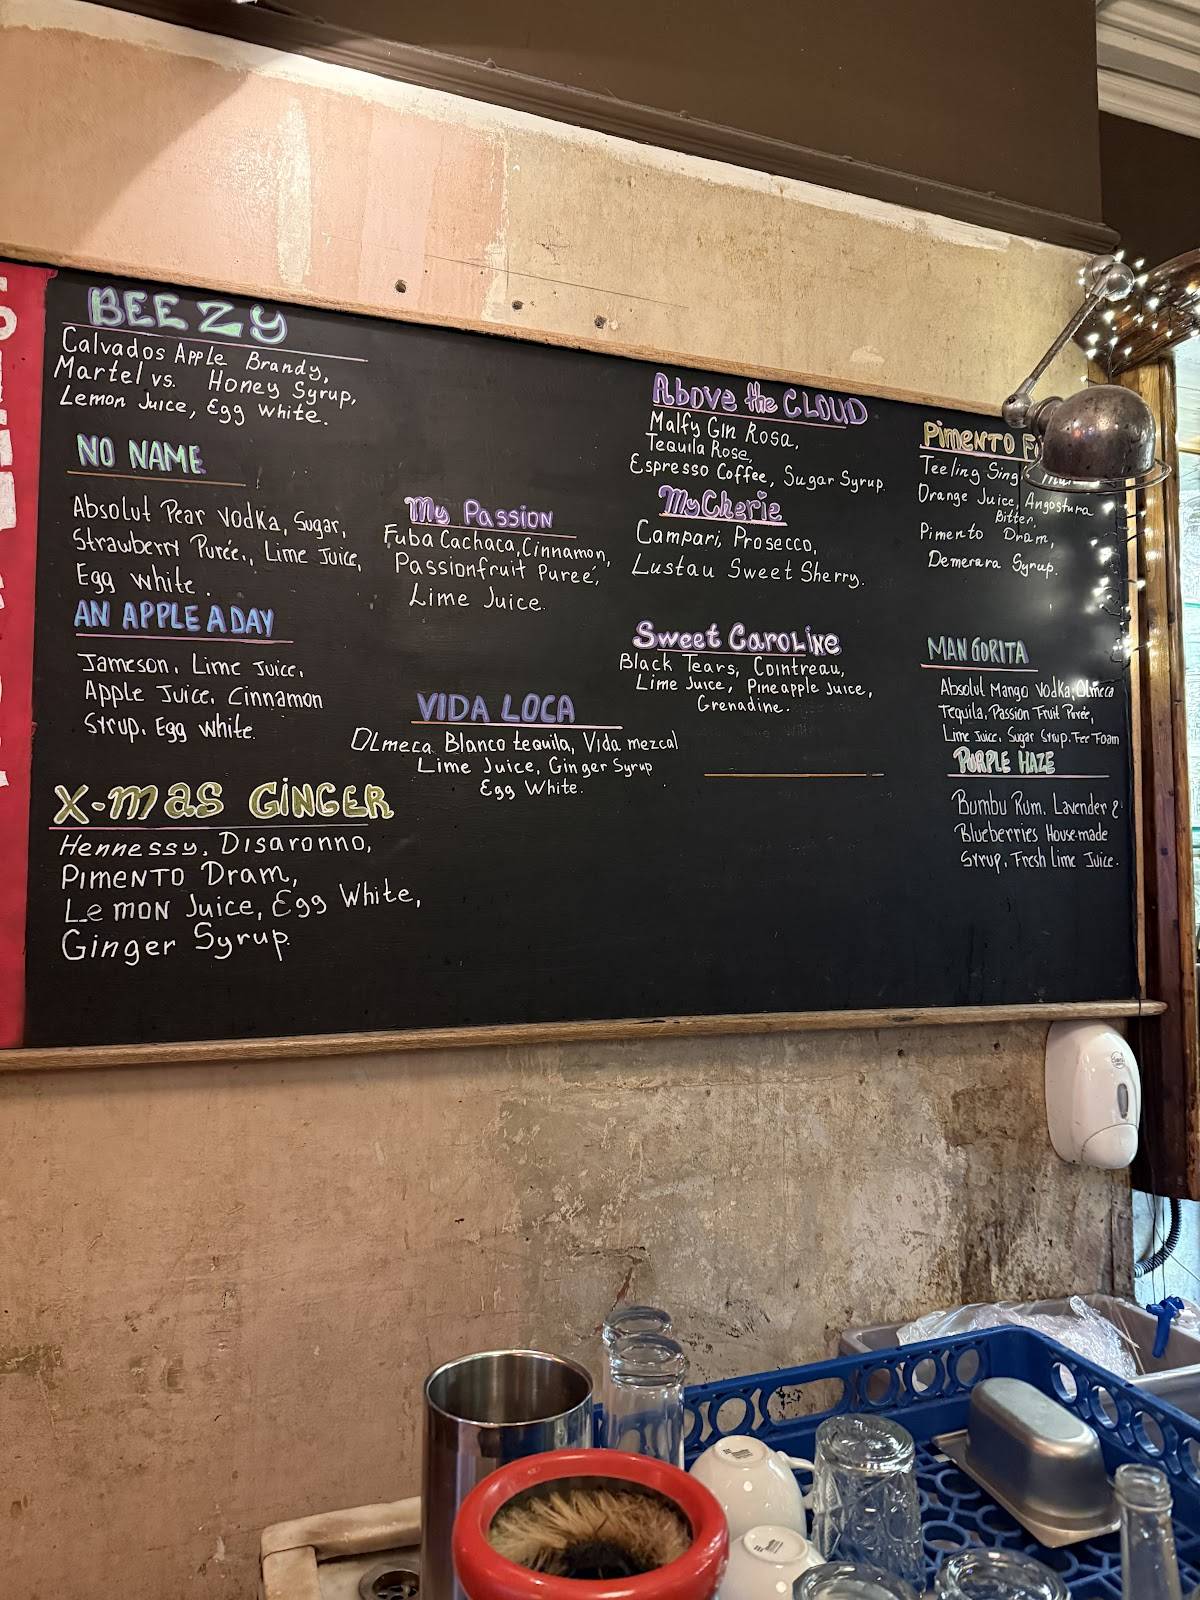 BEEZY
Calvados Apple Brandy,
Martel vs. Honey Syrup,
Lemon Juice, Egg white.
NO NAME
Absolut Pear Vodka, Sugar,
Strawberry Purée., Lime Juice,
Egg white.
AN APPLE A DAY
Jameson, Lime Juice,
Apple Juice, Cinnamon
Syrup, Egg white.
X-mas GINGER
Hennessy, Disaronno,
PIMENTO Dram,
Lemon Juice, Egg White,
Ginger Syrup.
My Passion
Fuba Cachaca, Cinnamon,
Passionfruit Pureé,
Lime Juice.
VIDA LOCA
Olmeca Blanco tequila, Vida mezcal
Lime Juice, Ginger Syrup
Egg White.
Above the CLOUD
Malfy Gin Rosa,
Tequila Rose,
Espresso Coffee, Sugar Syrup.
My Cherie
Campari, Prosecco,
Lustau Sweet Sherry.
Sweet Caroline
Black Tears, Cointreau,
Lime Juice, Pineapple Juice,
Grenadine.
Pimento
Teeling
Orange Juice, Angostura
Bitter,
Pimento Dram,
Demerara Syrup.
MANGORITA
Absolut Mango Vodka, Olmeca
Tequila, Passion Fruit Purée,
Lime Juice, Sugar Syrup. Fee Foam
PURPLE HAZE
Bumbu Rum, Lavender &
Blueberries House-made
Syrup, Fresh Lime Juice.